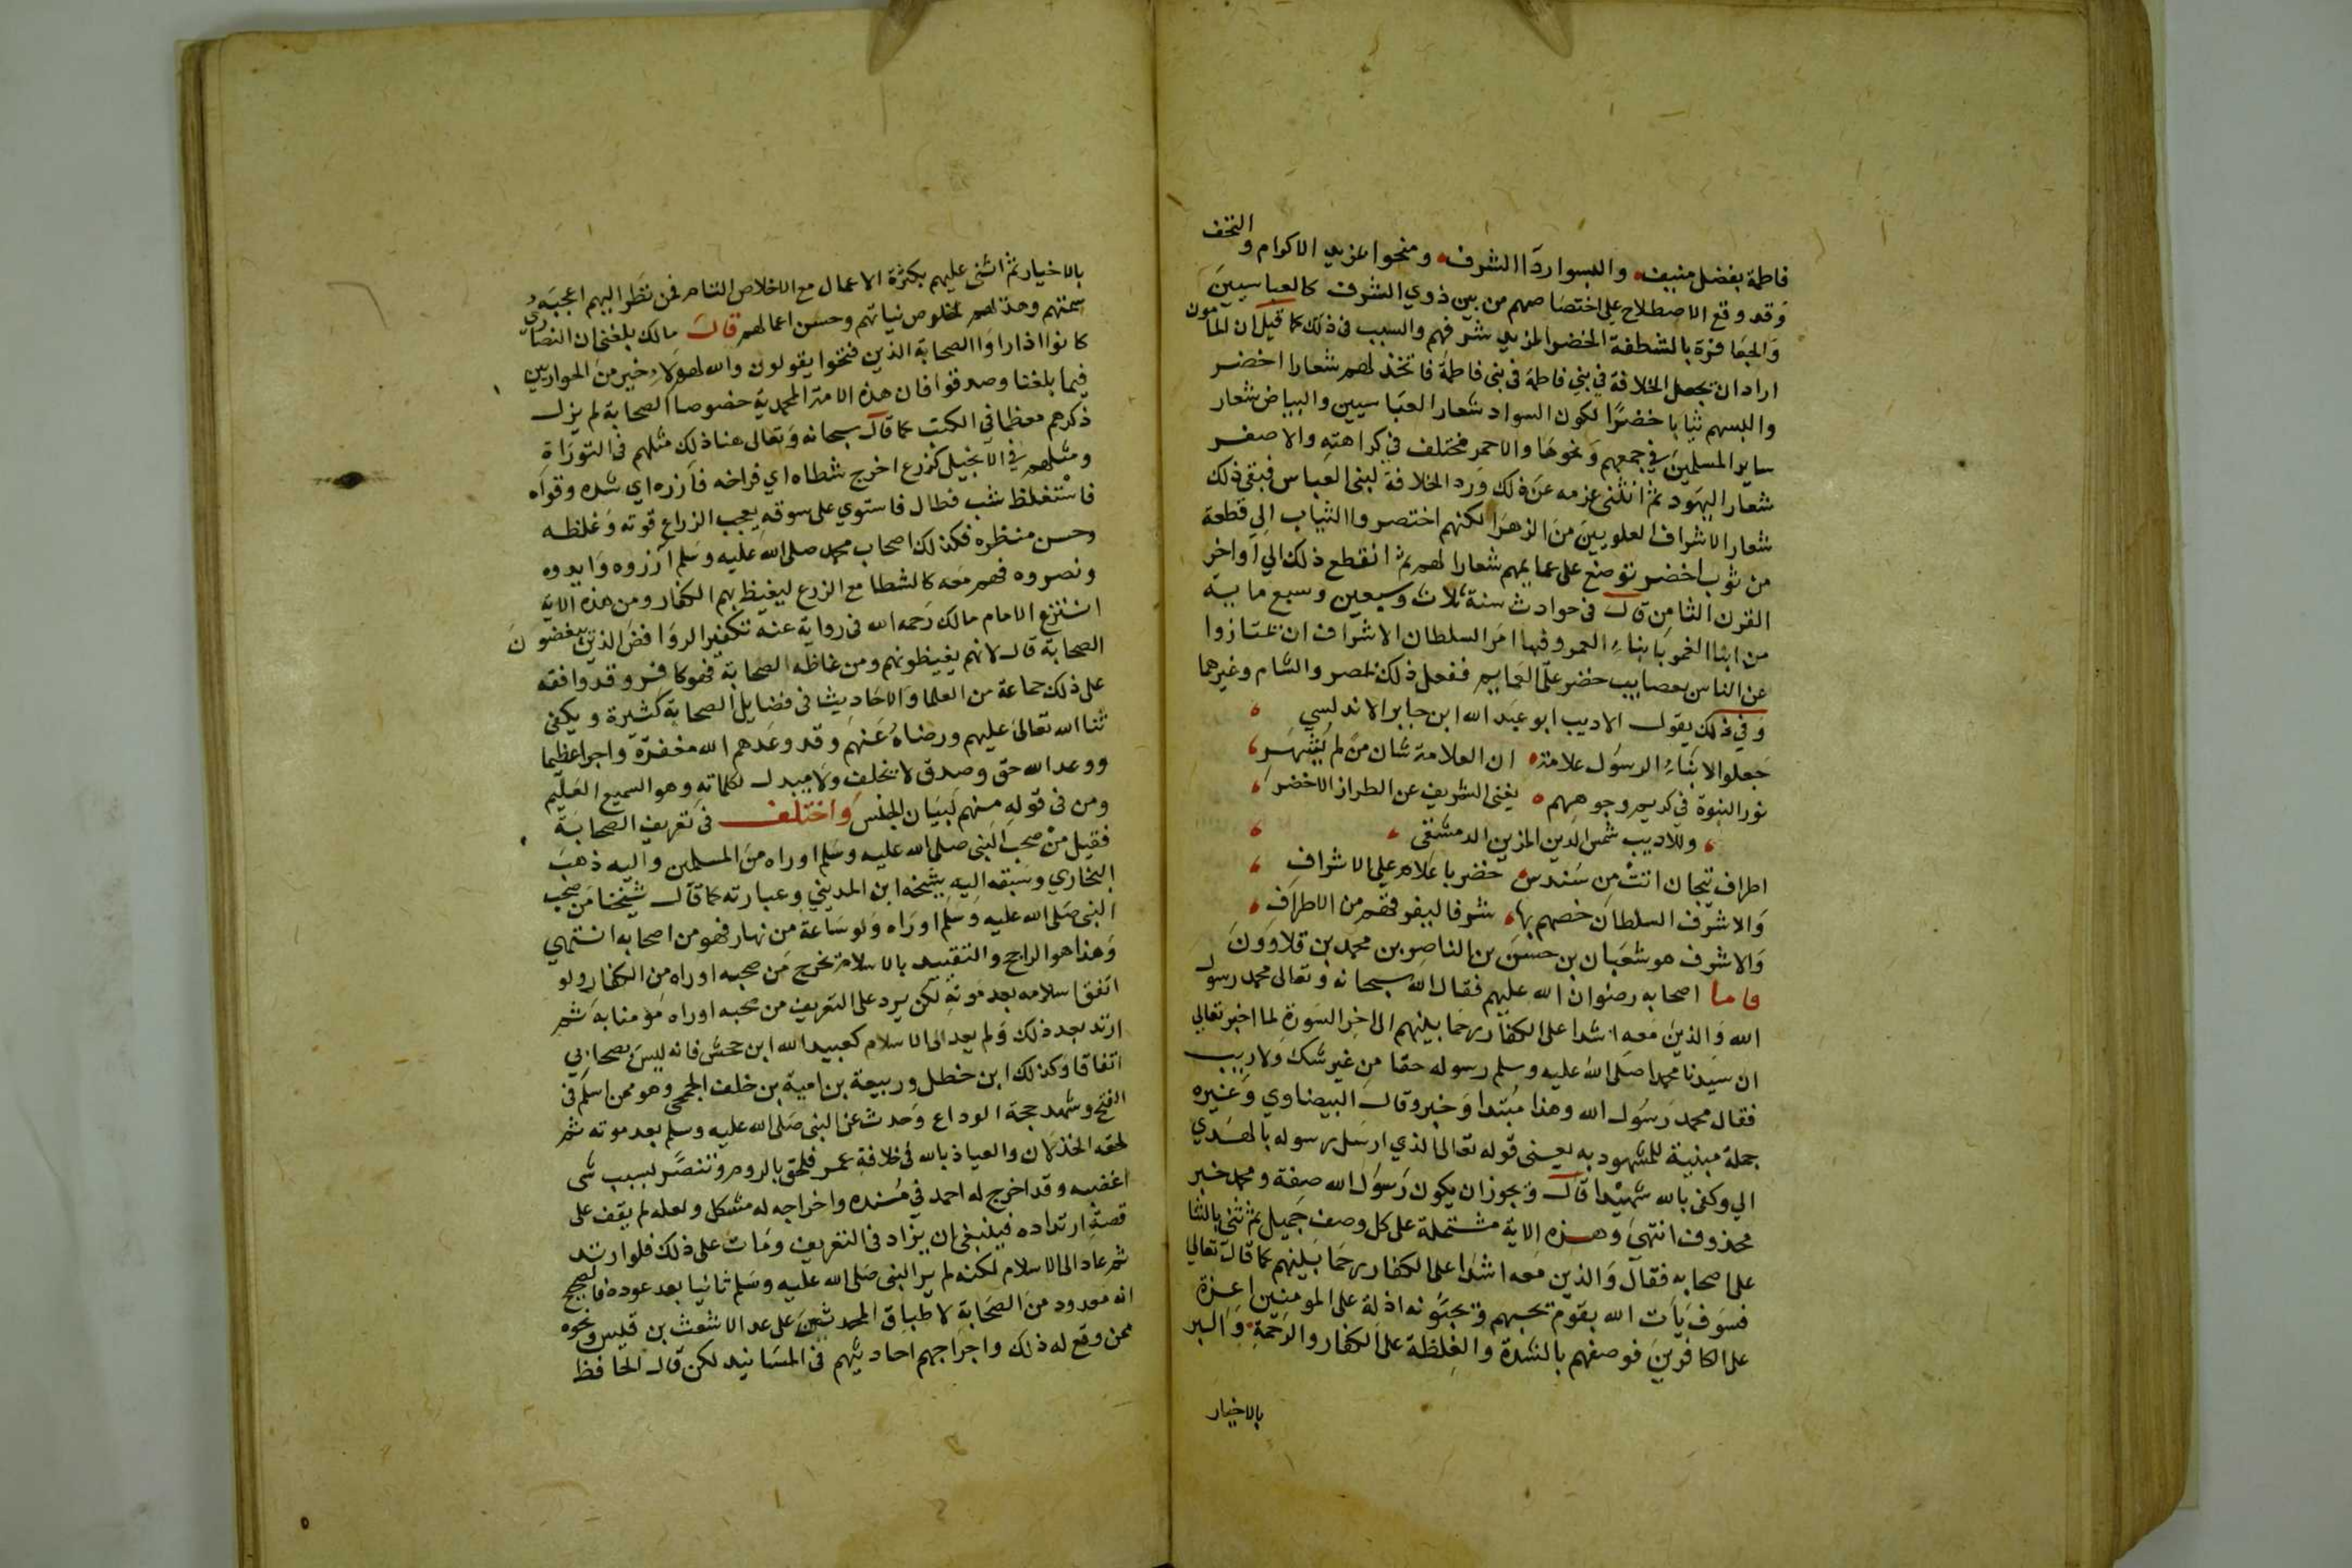 فاطمة بفضل منيف والبسوا ردآ الشرف ومنحوا بمزيد الاكرام والتحف
وَقد وقع الاصطلاح على اختصاصهم من بين ذوي الشرف كالعباسيينَ
وَالجعافرة بالشطفة الخضرا لمزيد شرفهم والسبب فى ذلك كما قيل ان المامون
اراد ان يجعل الخلافة في بني فاطمة فى بنى فاطمة فاتخذ لهم شعارا اخضر
والبسهم ثيابا خضرًا لكون السواد شعار العبَاسيين والبياض شعار
ساير المسلمينَ في جمعهم وَنحوهَا والاحمر مختلف في كراهته والاصفر
شعار اليهَود ثم انثنى عزمه عَن ذلك وَرد الخلافة لبنى العَباس فبقى ذلك
شعار الاشراف العلويينَ منَ الزهرَا لكنهم اختصروا الثياب الى قطعة
من ثوب اخضر توضع على عمايمهم شعارا لهم ثم انقطع ذلك الى اواخر
القرن الثامن قال فى حوادث سنة ثلاث وسبعين وسبع ماية
من انبا الغمر بَابناء العمر وفيها امرَ السلطان الاشراف ان يمتازوا
عن الناس بعصايب خضر علَى العَمايم ففعل ذلك بمصر والشام وغيرهما
وَفي ذلك يقول الاديب ابو عبَد الله ابن جابر الاندلسي
جَعلوا الابنَاءِ الرسوُل علامة ان العلامة شان منَ لم يُشهَرِ
نور النبوة في كريم وجوههم يغنى الشريف عن الطراز الاخضر
وللاديب شمس الدين المزين الدمشقى
اطراف تيجان اتتْ منِ سَندس خضر باعلام على الاشراف
وَالاشرف السلطان خصهم بها شرفا ليفرقهم من الاطراف
وَالاشرف هو شعبَان بن حسنَ بن الناصر بن محمد بن قلاووَنَ
فاما اصحابه رضوان الله عليهم فقال الله سبحانه وَتعالى محمد رسول
الله وَالذينَ مَعه اشدا على الكفار رحَما بينهم الى اخر السَورة لما اخبر تعالى
ان سيَدنا محمدا صَلى الله عليه وسلم رسوله حقا منِ غير شك وَلاريب
فقال محمد رَسوُل الله وهذا مبُتدا وَخبر وقال البيضاوي وَغيره
جملة مبنية للمشهود به يعنى قوله تعالى الذي ارسَل رسوله بالهدي
الي وكفى بالله شهيْدا قال وَيجوز ان يكون رَسوُل الله صفة ومحمد خبر
محذوف انتهىَ وَهذه الاية مشتملة على كل وصف جميل ثم ثنى بالثنا
على اصحابه فقال وَالذين معه اشدا على الكفار رحمَا بينهم كما قال تعالى
فسَوفَ يَأت الله بقوم يحبهم وَيحبَونه اذلة على المومنين اعزة
على الكافرينَ فوصفهم بالشدة والغِلظة على الكفار والرحَمةِ وَالبر
بالاخيار
بالاخيار ثم اثنى عليهم بكثرة الاعمال مع الاخلاص التام فمن نظر اليهم اعجبَه
سمتهم وهديهم لخلوص نياتهم وحسن اعمالهم قال مالك بلغنى ان النصارى
كانوا اذا راوَا الصحابة الذين فتحوا يقولون والله لهؤلاء خير من الحواريين
فيما بلغنا وصدقوا فان هذه الامة المحمدية خصوصا الصحابة لم يزل
ذكرهم معظما في الكتب كما قال سبحانه وَتعالى هنا ذلك مثلهم فى التورَاة
ومثلهم في الانجيل كزرع اخرج شطاه اي فراخه فآزره اي شده وقواه
فاستغلظ شب فطال فاستوي على سوقه يعجب الزراع قوته وَغلظه
وحسن منظره فكذلك اصحاب محمد صلى الله عليه وسَلم آزروه وَايدوه
ونصروه فهم معَه كالشطا مع الزرع ليغيظ بهم الكفار ومن هذه الاية
انتزع الامام مالك رَحمه الله فى رواية عنه تكفير الروَافض الذين يبغضونَ
الصحابة قال لانهم يغيظونهم ومن غاظه الصحابة فهو كافر وقد وافقه
على ذلك جماعة من العلما وَالاحَاديث فى فضايل الصحابة كثيرة ويكفى
ثنا الله تعالىَ عليهم ورضاهُ عَنهم وقد وعَدهم الله مغفرة واجرا عظيما
ووعد الله حق وصدق لا يخلف وَلا مبدل لكلماته وهو السميع العَليم
ومن فى قوله منهم لبيَان الجنس وَاختلف فى تعريف الصحابَة
فقيل منْ صحب النبى صلى الله عليه وسَلم او راه منَ المسلمين واليه ذهَبَ
البخاري وسَبقه اليه شيخه ابن المديني وعبارته كما قال شيخنا من صحب
النبى صَلى الله عليه وَسلم او رَاه وَلو سَاعة من نهار فهو من اصحابه انتهي
وَهذا هو الراجح والتقييد بالاسلام يخرج مَن صحبه او راه من الكفار ولو
اتفق اسلامه بعد موَته لكن يرد على التعريف من صحبه او راه مؤمنا به ثم
ارتد بعد ذلك وَلم يعد الى الاسلام كعبيد الله ابن جحش فانه ليسَ بصحابي
اتفاقا وكذلك ابن خطل وربيعة بن امية بن خلف الجمحى وهو ممن اسلم فى
الفتح وشهد حجة الوداع وَحدث عن النبى صَلى الله عليه وسلم بعد موته ثم
لحقه الخذلان والعياذ بالله فى خلافة عمر فلحق بالروم وتنصَّر لسبب شى
اغضبه وقد اخرج له احمد في مسُنده واخراجه له مشكل ولعله لم يقف على
قصة ارتداده فينبغى ان يزاد فى التعريف وَمات على ذلك فلو ارتد
ثم عاد الى الاسلام لكنه لم ير النبى صَلى الله عليه وَسَلم ثانيا بعد عوده فالصحيح
انه معدود منَ الصحَابة لاطباق المحدثين على عد الاشعث بن قيس ونحوه
ممن وقع له ذلك واخراجهم احاديثهم فى المسَانيد لكن قال الحافظ